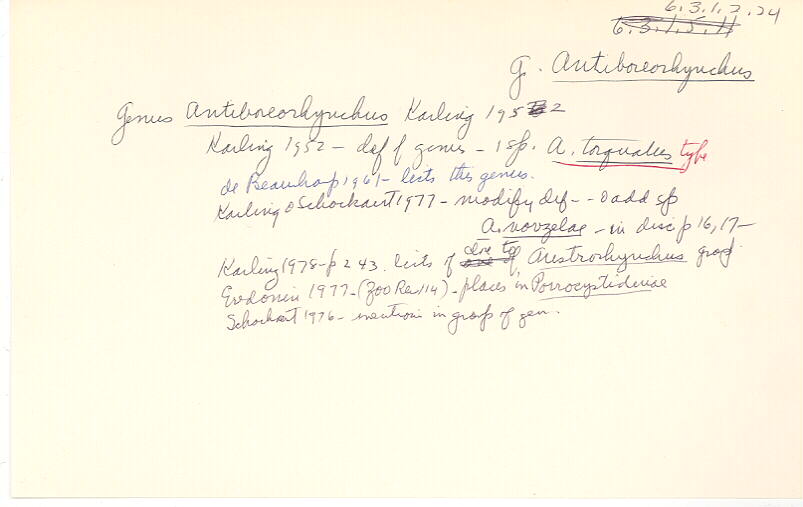 6.3.1.2.24
6.3.1.5.11
g. Antiboreorhynchus
Genus Antiboreorhynchus Karling 1952
Karling 1952 – def of genus – 1 sp. A. torquatus type
de Beauchamp 1961 – lists this genus.
Karling & Schockaert 1977 – modify def - - 0 add sp
A. novzelae – in disc p 16, 17 –
Karling 1978 – p 243. lists of close to Austrorhynchus group
Evdonin 1977 – (Zoo Rec 114) – places in Porrocystidinae
Schockaert 1976 – mention in group of gen.